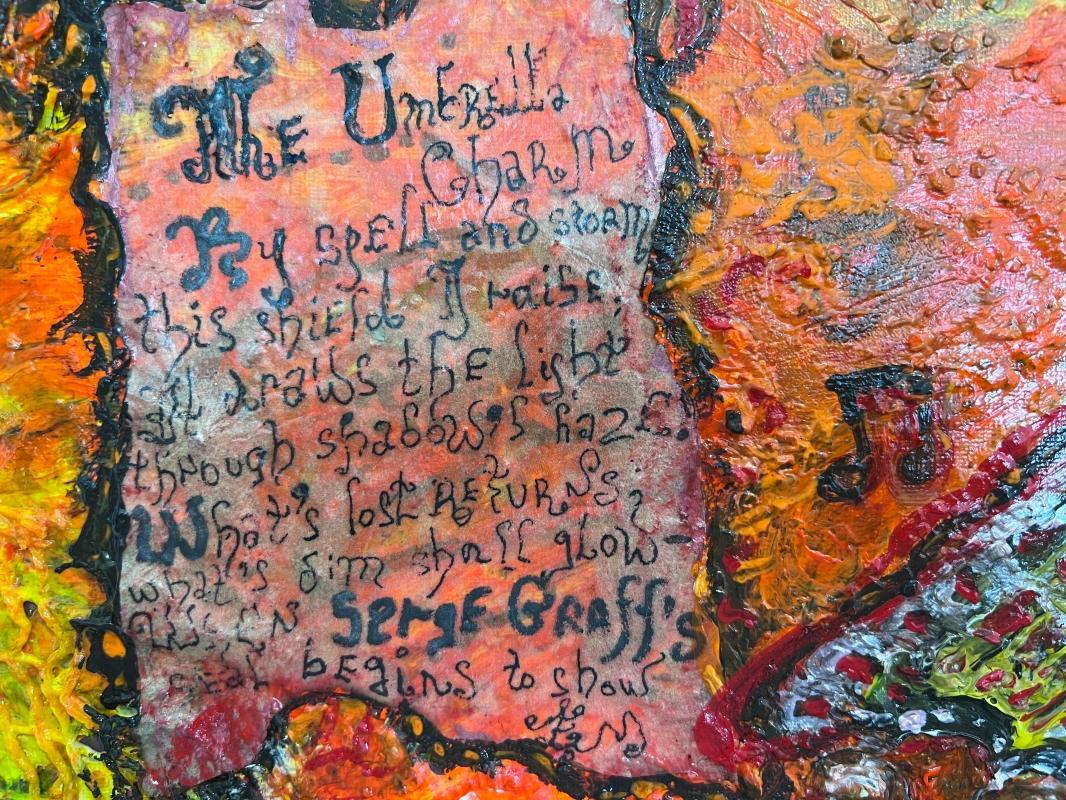 The Umbrella
Charm
By spell and storm
this shield I raise,
It draws the light
through shadow's haze.
What's lost returns;
what's dim shall glow—
Serge Graff's
begins to show